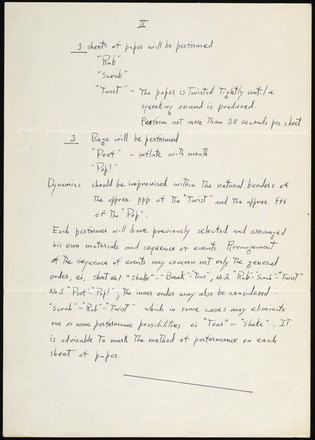 II
3 sheets of paper will be performed
"Rub"
"Scrub"
"Twist" - The paper is Twisted Tightly until a
squeaking sound is produced.
Perform not more than 30 seconds per sheet
3 Bags will be performed
"Poof" - inflate with mouth
"Pop!"
Dynamics should be improvised within the natural borders of
the approx ppp of the "Twist" and the approx fff
of the "Pop".
Each performer will have previously selected and arranged
his own materials and sequence of events. Arrangement
of the sequence of events may concern not only the general
order, ei, sheet No.1 "Shake"-"Break"-"Tear", No.2 "Rub"-"Scrub"-"Twist"
No.3 "Poof"-"Pop!"; the inner order may also be considered -
"Scrub"-"Rub"-"Twist" which in some cases may eliminate
one or more performance possibilities ei "Tear" - "Shake". IT
is advisable to mark the method of performance on each
sheet of paper.